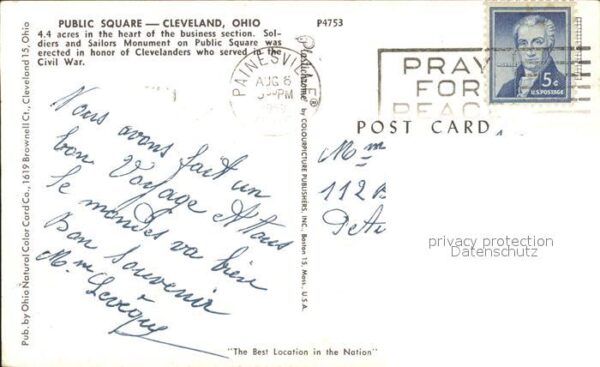 PUBLIC SQUARE — CLEVELAND, OHIO
4.4 acres in the heart of the business section. Sol-
diers and Sailors Monument on Public Square was
erected in honor of Clevelanders who served in the
Civil War.
P4753
PAINESVILLE
AUG 6
PM
PRAY
FOR
PEACE
5¢
U.S. POSTAGE
POST CARD
Pub. by Ohio Natural Color Card Co., 1619 Brownell Ct., Cleveland 15, Ohio
Plastichrome® by COLOURPICTURE PUBLISHERS, INC., Boston 15, Mass., U.S.A.
Nous avons fait un
bon Voyage et tous
le mondes va bien
Bon Souvenir
M.me Levèque
Mm
112
Det
privacy protection
Datenschutz
"The Best Location in the Nation"